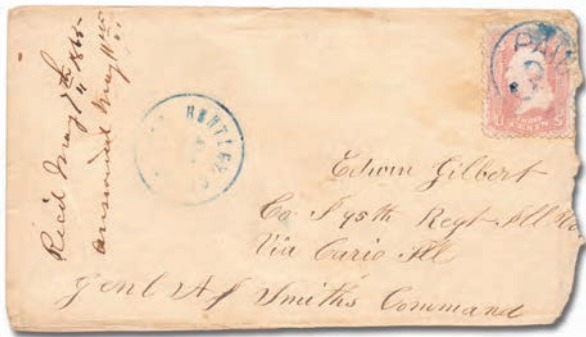 Rec'd May 7th 1865
answered May 11th
HUNTLEY
PAID
3
U THREE CENTS S
Edwin Gilbert
Co I 95th Regt Ill
Via Cario Ill
Genl A J Smiths Command